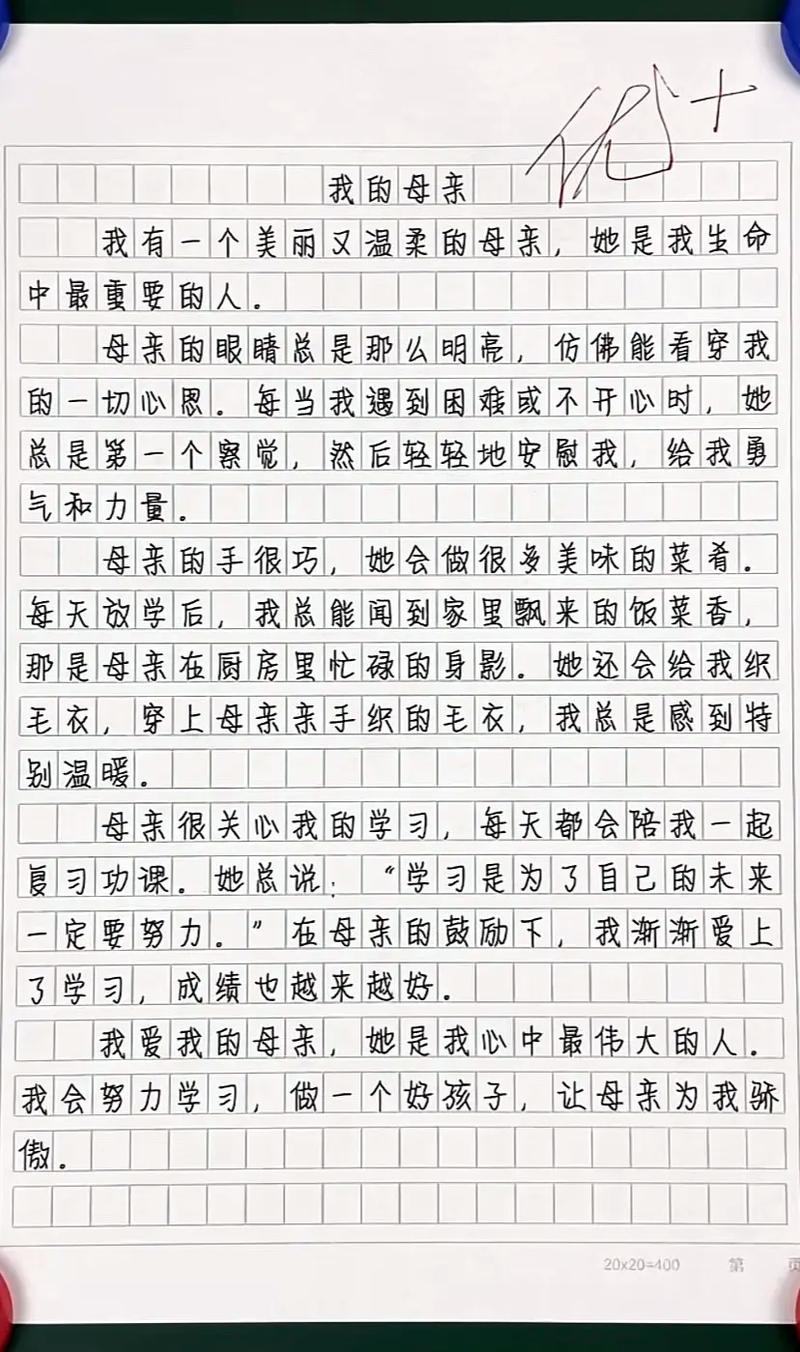 优+
我的母亲
我有一个美丽又温柔的母亲，她是我生命
中最重要的人。
母亲的眼睛总是那么明亮，仿佛能看穿我
的一切心思。每当我遇到困难或不开心时，她
总是第一个察觉，然后轻轻地安慰我，给我勇
气和力量。
母亲的手很巧，她会做很多美味的菜肴。
每天放学后，我总能闻到家里飘来的饭菜香，
那是母亲在厨房里忙碌的身影。她还会给我织
毛衣，穿上母亲亲手织的毛衣，我总是感到特
别温暖。
母亲很关心我的学习，每天都会陪我一起
复习功课。她总说：“学习是为了自己的未来
一定要努力。”在母亲的鼓励下，我渐渐爱上
了学习，成绩也越来越好。
我爱我的母亲，她是我心中最伟大的人。
我会努力学习，做一个好孩子，让母亲为我骄
傲。
20x20=400 第 页